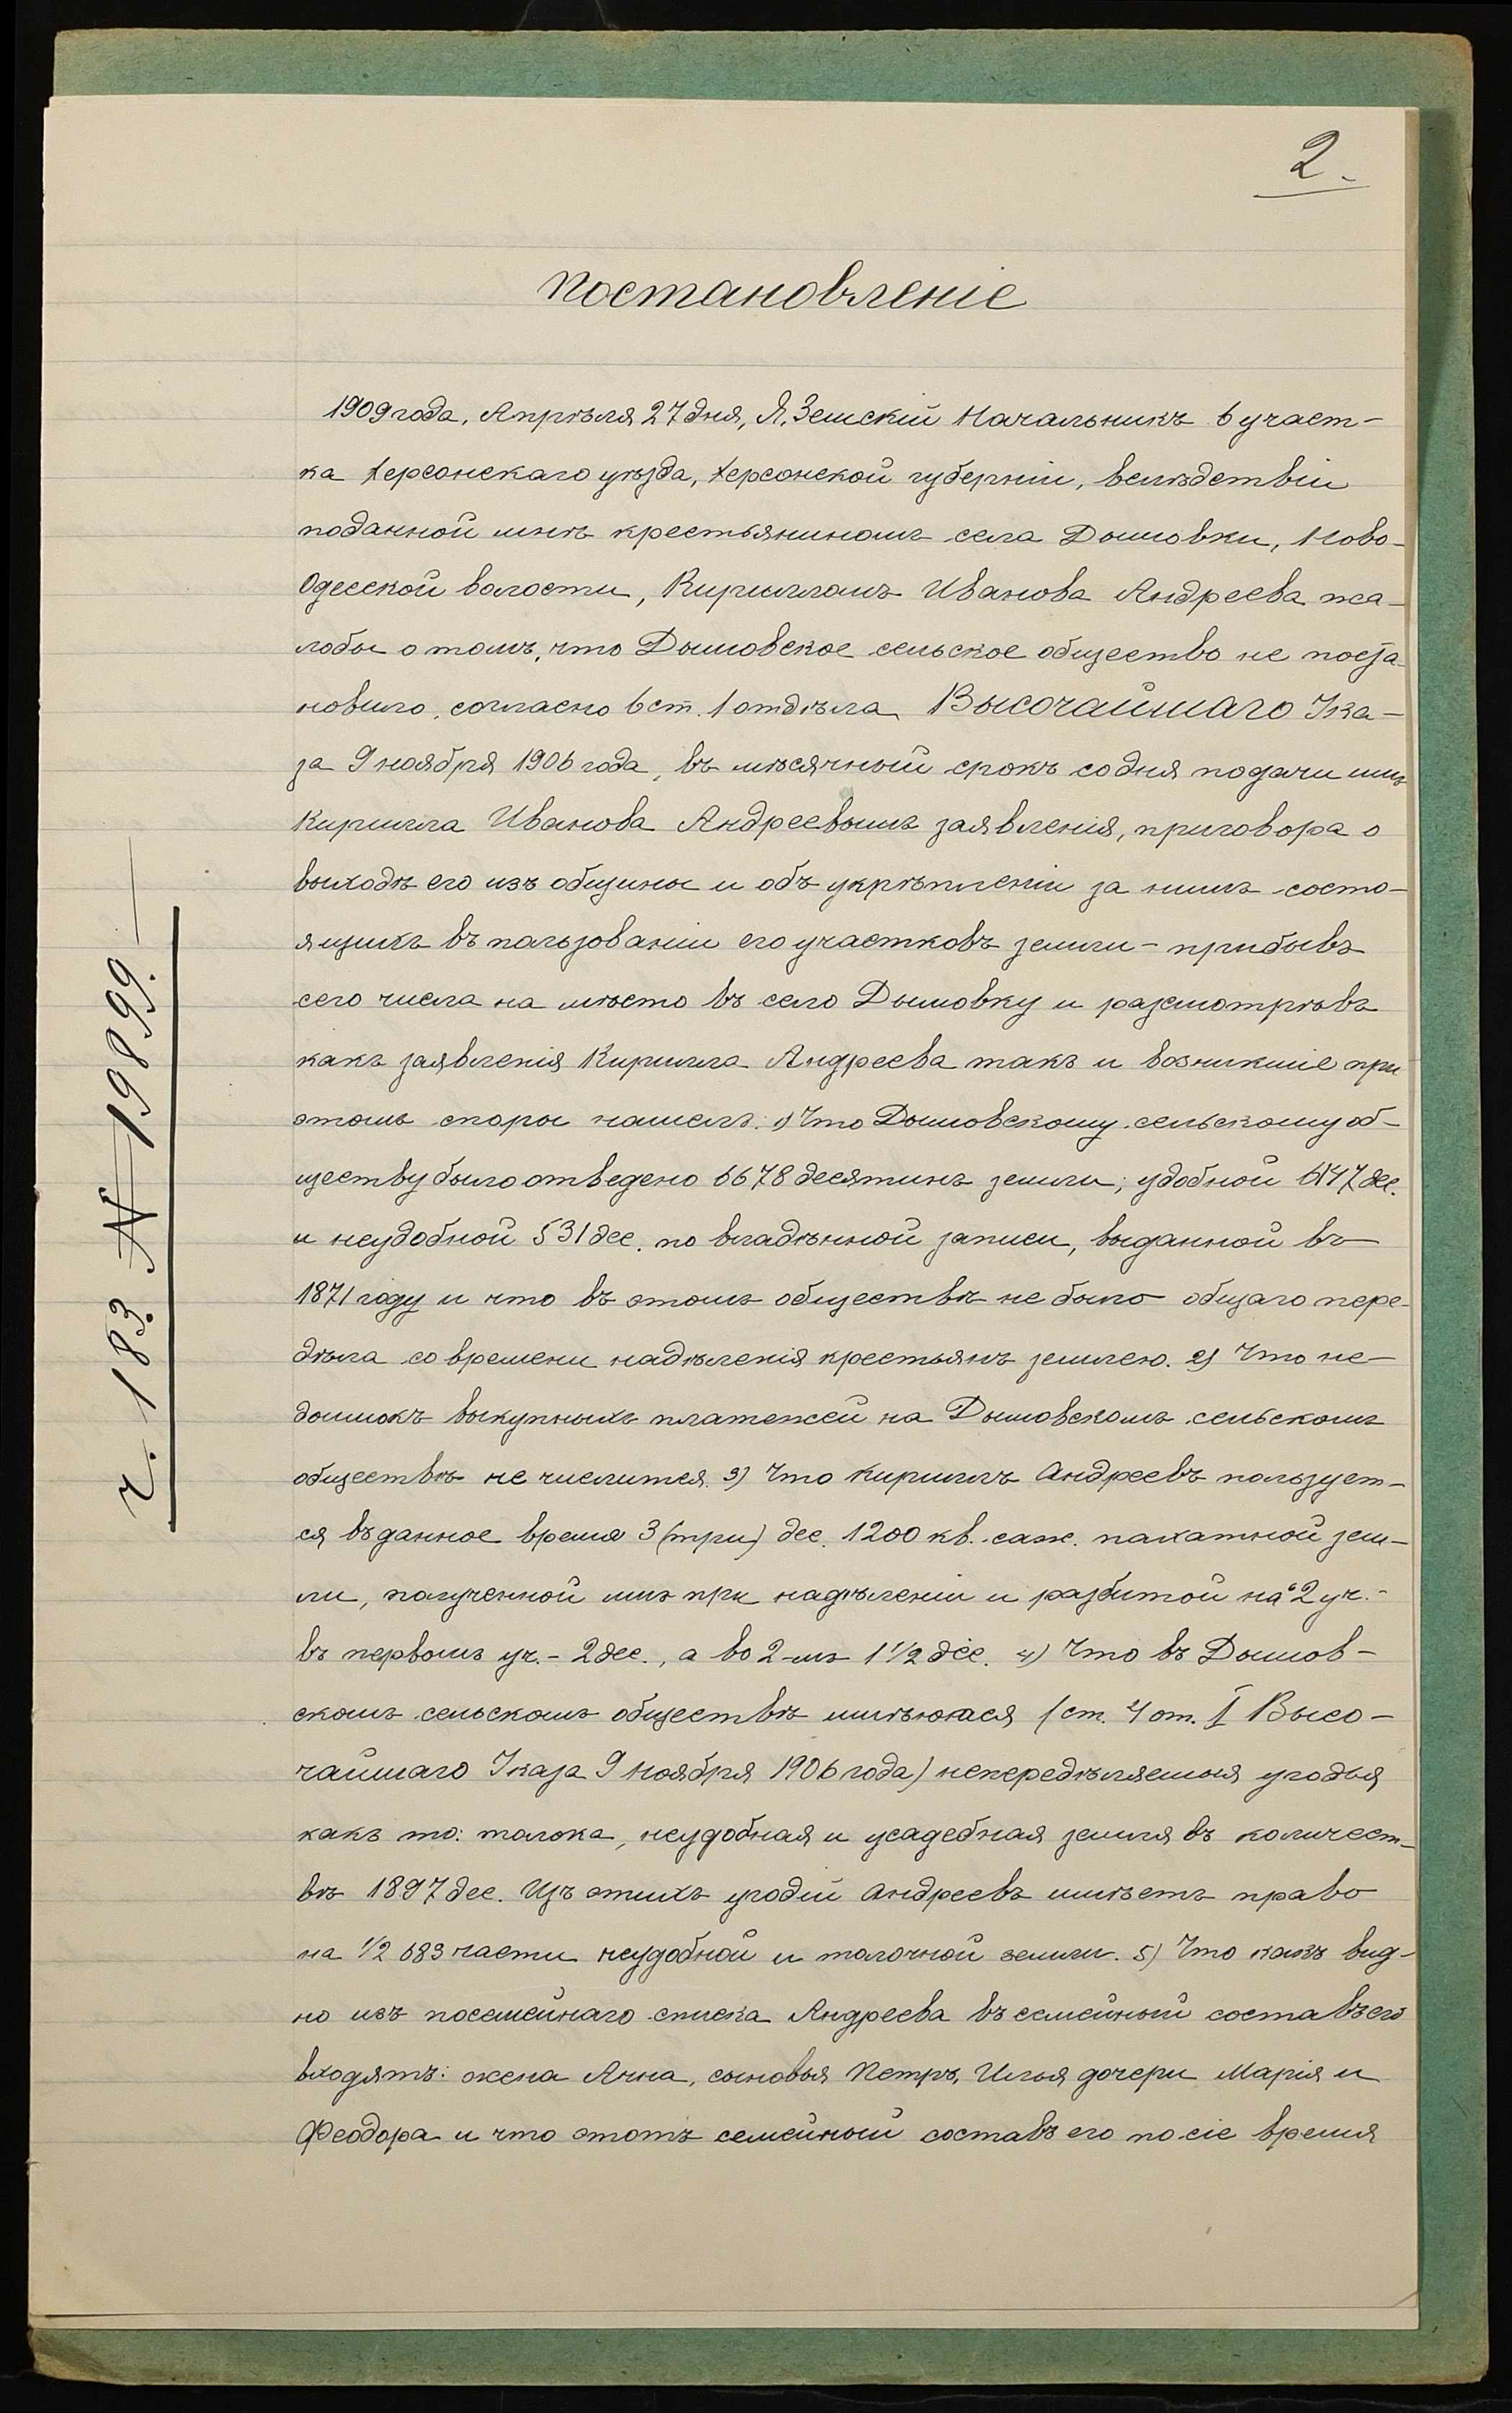 2.
Постановленіе
1909 года, Апрѣля 27 дня, Я, Земскій Начальникъ 6 участ-
ка Херсонскаго уѣзда, Херсонской губерніи, вслѣдствіи
поданной мнѣ крестьяниномъ села Дымовки, Ново-
Одесской волости, Кирилломъ Иванова Андреева жа-
лобы о томъ, что Дымовское сельское общество не поста-
новило, согласно 6 ст. 1 отдѣла Высочайшаго Ука-
за 9 ноября 1906 года, въ мѣсячный срокъ со дня подачи имъ
Кирилла Иванова Андреевымъ заявленія, приговора о
выходѣ его изъ общины и объ укрѣпленіи за нимъ состо-
ящихъ въ пользованіи его участковъ земли - прибывъ
сего числа на мѣсто въ село Дымовку и разсмотрѣвъ
какъ заявленія Кирилла Андреева такъ и возникшіе при
этомъ споры нашелъ: 1) Что Дымовскому сельскому об-
ществу было отведено 6678 десятинъ земли; удобной 6147 дес.
и неудобной 531 дес. по владѣнной записи, выданной въ
1871 году и что въ этомъ обществѣ не было общаго пере-
дѣла со времени надѣленія крестьянъ землею. 2) Что не-
доимокъ выкупныхъ платежей на Дымовскомъ сельскомъ
обществѣ не числится. 3) Что Кириллъ Андреевъ пользует-
ся въ данное время 3 (три) дес. 1200 кв. саж. пахатной зем-
ли, полученной имъ при надѣленіи и разбитой на 2 уч. -
въ первомъ уч. - 2 дес., а во 2-мъ 1 1/2 дес. 4) Что въ Дымов-
скомъ сельскомъ обществѣ имѣюжся (ст. 4 от. I Высо-
чайшаго Указа 9 ноября 1906 года) непередѣляемыя угодья
какъ то: толока, неудобная и усадебная земля въ количест-
вѣ 1897 дес. Изъ этихъ угодій Андреевъ имѣетъ право
на 1/2 683 части неудобной и толочной земли. 5) Что какъ вид-
но изъ посемейнаго списка Андреева въ семейный составъ его
входятъ: жена Анна, сыновья Петръ, Илья дочери Марія и
Феодора и что этотъ семейный составъ его по сіе время
ч. 183 № 19899.